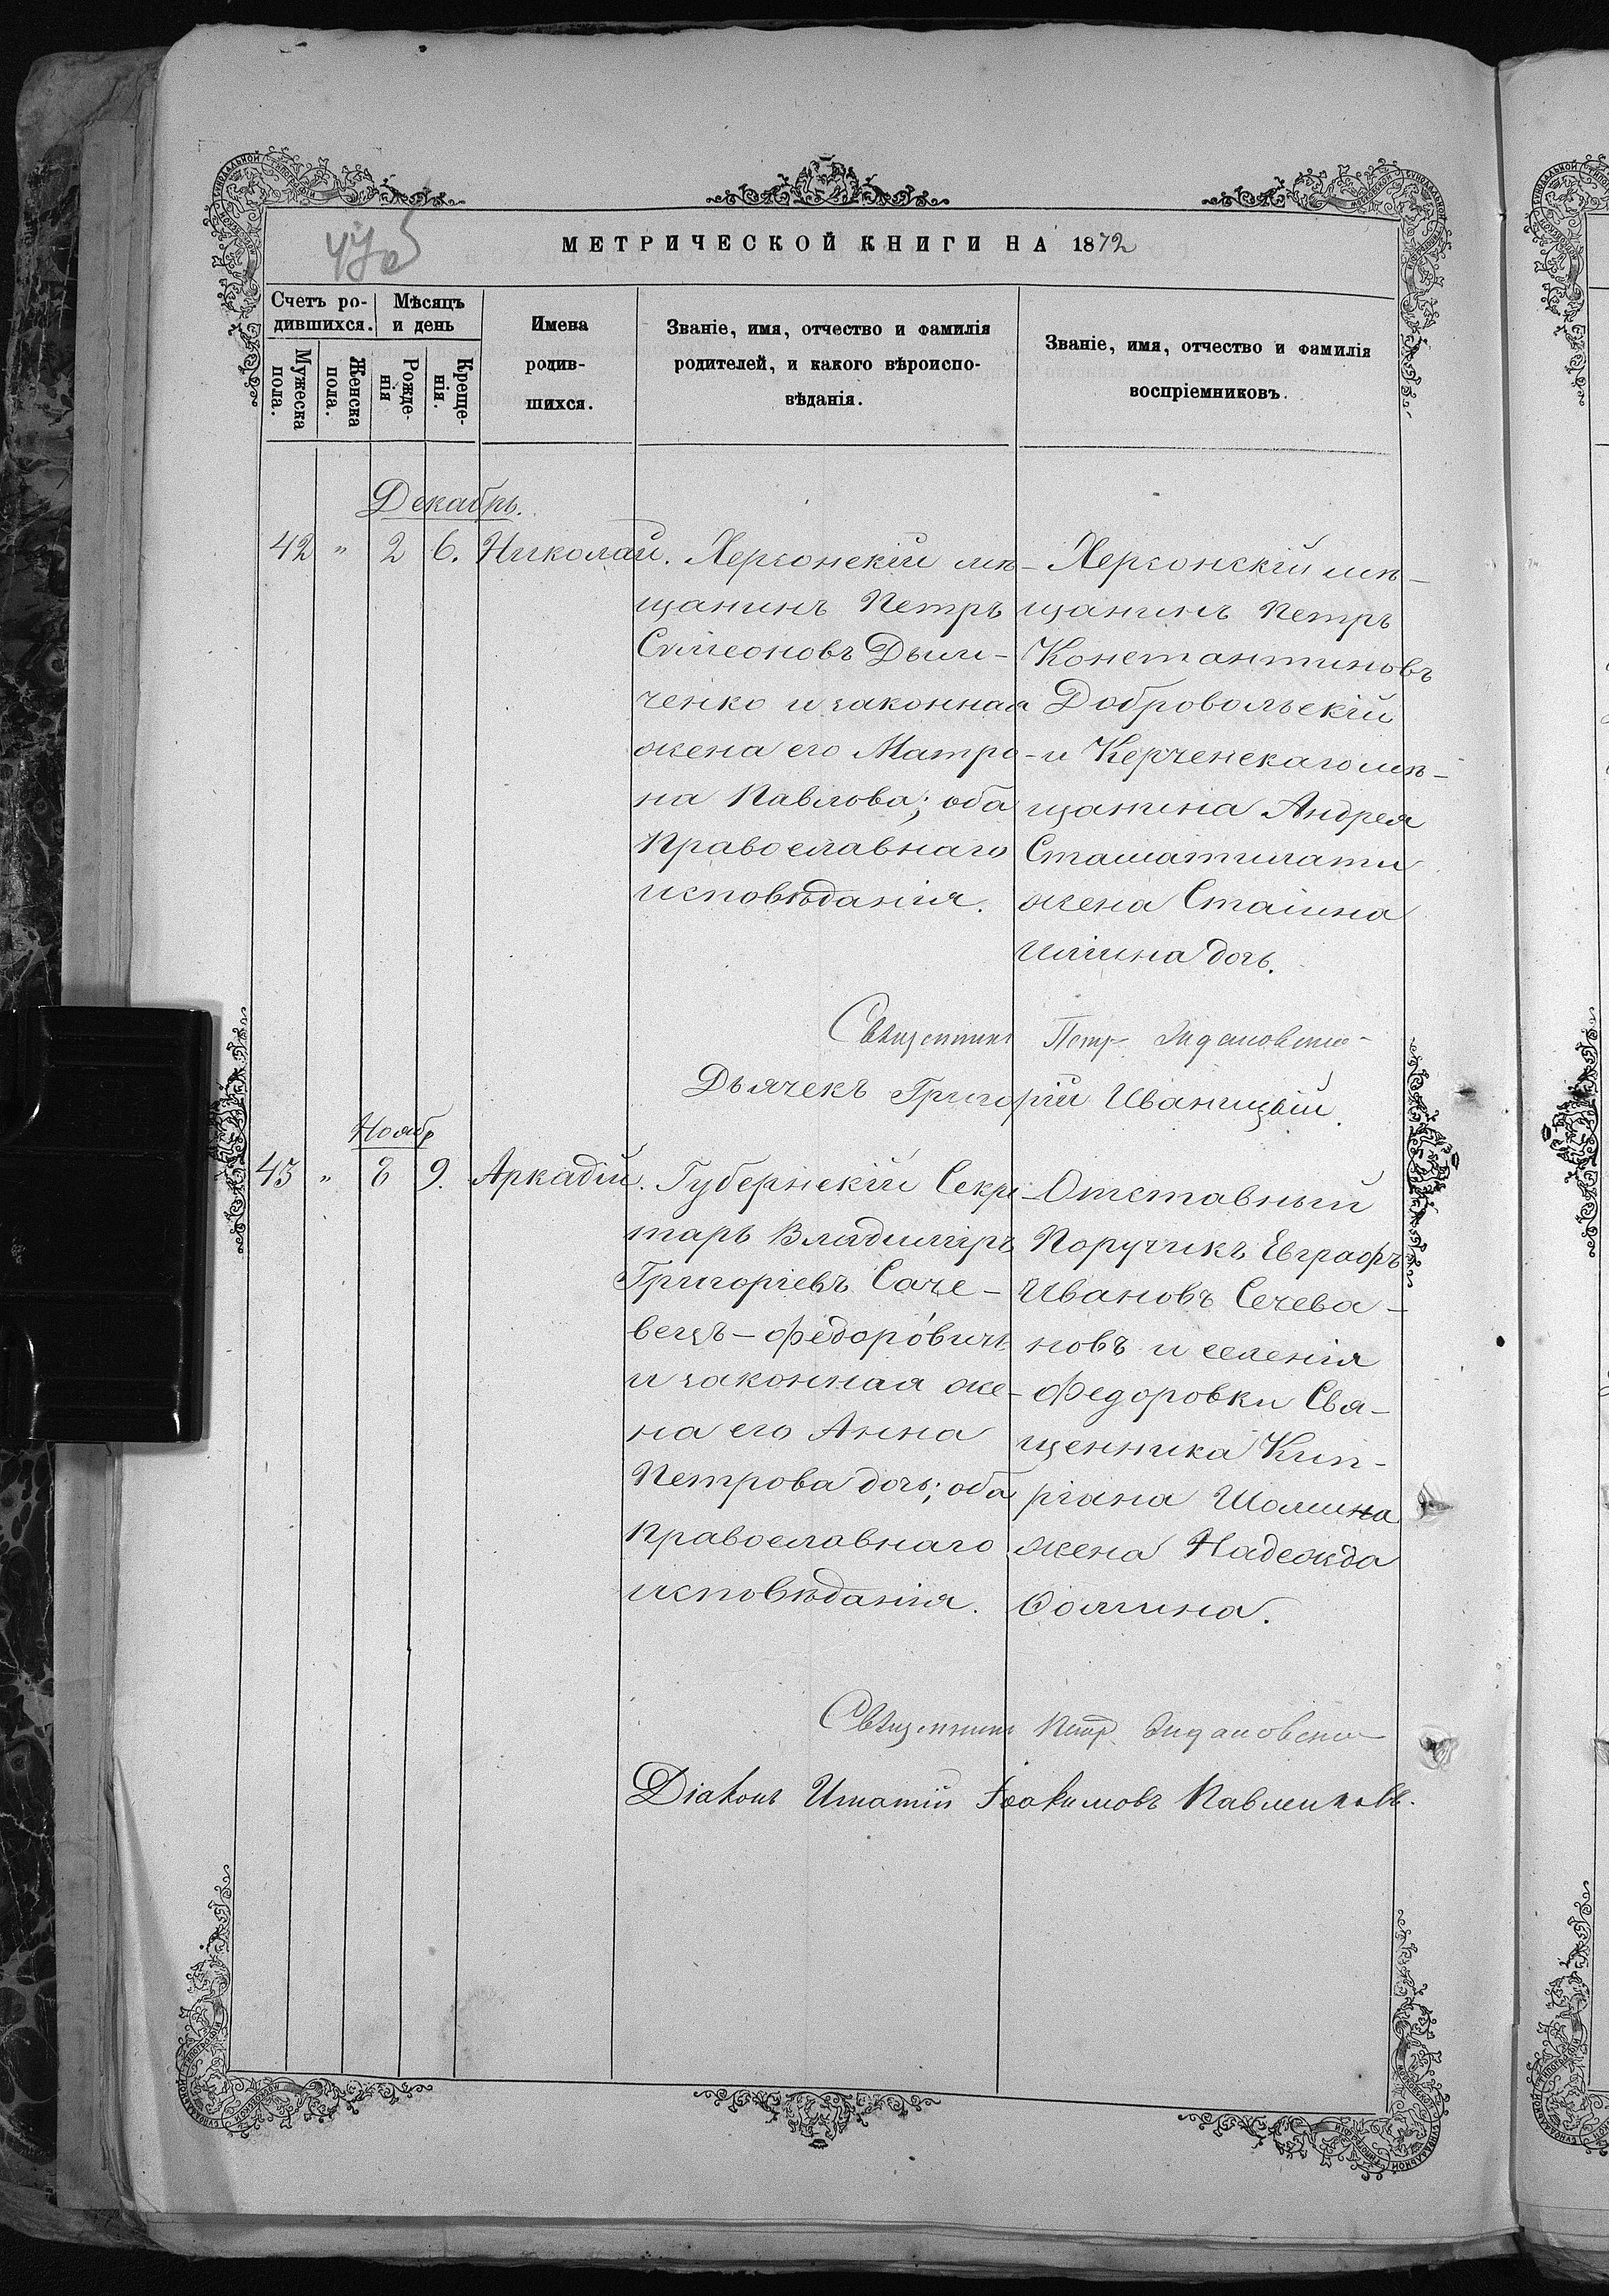 МЕТРИЧЕСКОЙ КНИГИ НА 1872
Счетъ ро-
дившихся.
Мѣсяцъ
и день
Мужеска
пола.
Женска
пола.
Рожде-
нія
Креще-
нія.
Имена
родив-
шихся.
Званіе, имя, отчество и фамилія
родителей, и какого вѣроиспо-
вѣданія.
Званіе, имя, отчество и фамилія
воспріемниковъ.
Декабрь.
42 " 2 6. Николай.
Херсонскій мѣ-
щанинъ Петръ
Симеоновъ Дым-
ченко и законная
жена его Матро-
на Павлова; оба
Православнаго
исповѣданія.
Херсонскій мѣ-
щанинъ Петръ
Константиновъ
Добровольскій
и Керченскаго мѣ-
щанина Андрея
жена
дочь.
Священникъ Петръ
Дьячекъ Григорій Иваницкій.
Ноябр
43 " 8 9. Аркадій.
Губернскій Секре-
тарь Владиміръ
Григоріевъ Саче-
вецъ-Федоровичъ
и законная же-
на его Анна
Петрова дочь; оба
Православнаго
исповѣданія.
Отставный
Поручикъ Евграфъ
Ивановъ Сечева-
новъ и селенія
Федоровки Свя-
щенника Кип-
ріана Шомина
жена Надежда
Фомина.
Священникъ Петръ
Діаконъ Игнатій Іоакимовъ